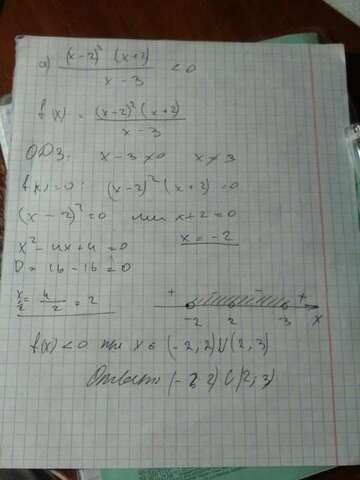 а) (x-2)² (x+2) / x-3 < 0
f(x) = (x-2)² (x+2) / x-3
ОДЗ: x-3≠0 x≠3
f(x)=0: (x-2)² (x+2) =0
(x-2)²=0 или x+2=0
x²-4x+4=0 x=-2
D=16-16=0
x = 4/2 = 2
+ +
-2 2 3 x
f(x)<0 при x∈(-2,2)U(2,3)
Ответ: (-2 2) U (2,3)